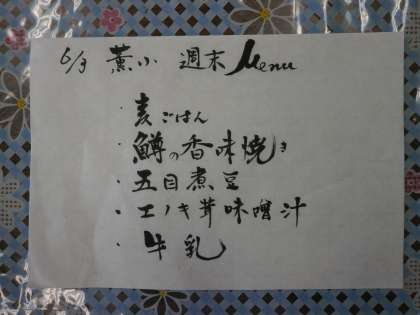 6/3 薫小 週末 Menu
・麦ごはん
・鱒の香味焼き
・五目煮豆
・エノキ茸味噌汁
・牛乳